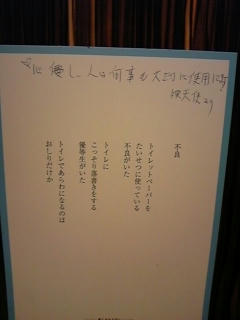 心優し人は何事も大切に使用する
不良
トイレットペーパーを
たいせつに使っている
不良がいた
トイレに
こっそり落書きをする
優等生がいた
トイレであらわになるのは
おしりだけか